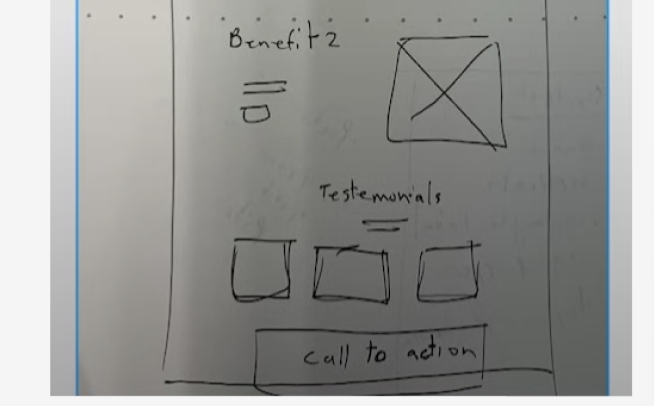 Benefit 2
Testemonials
call to action